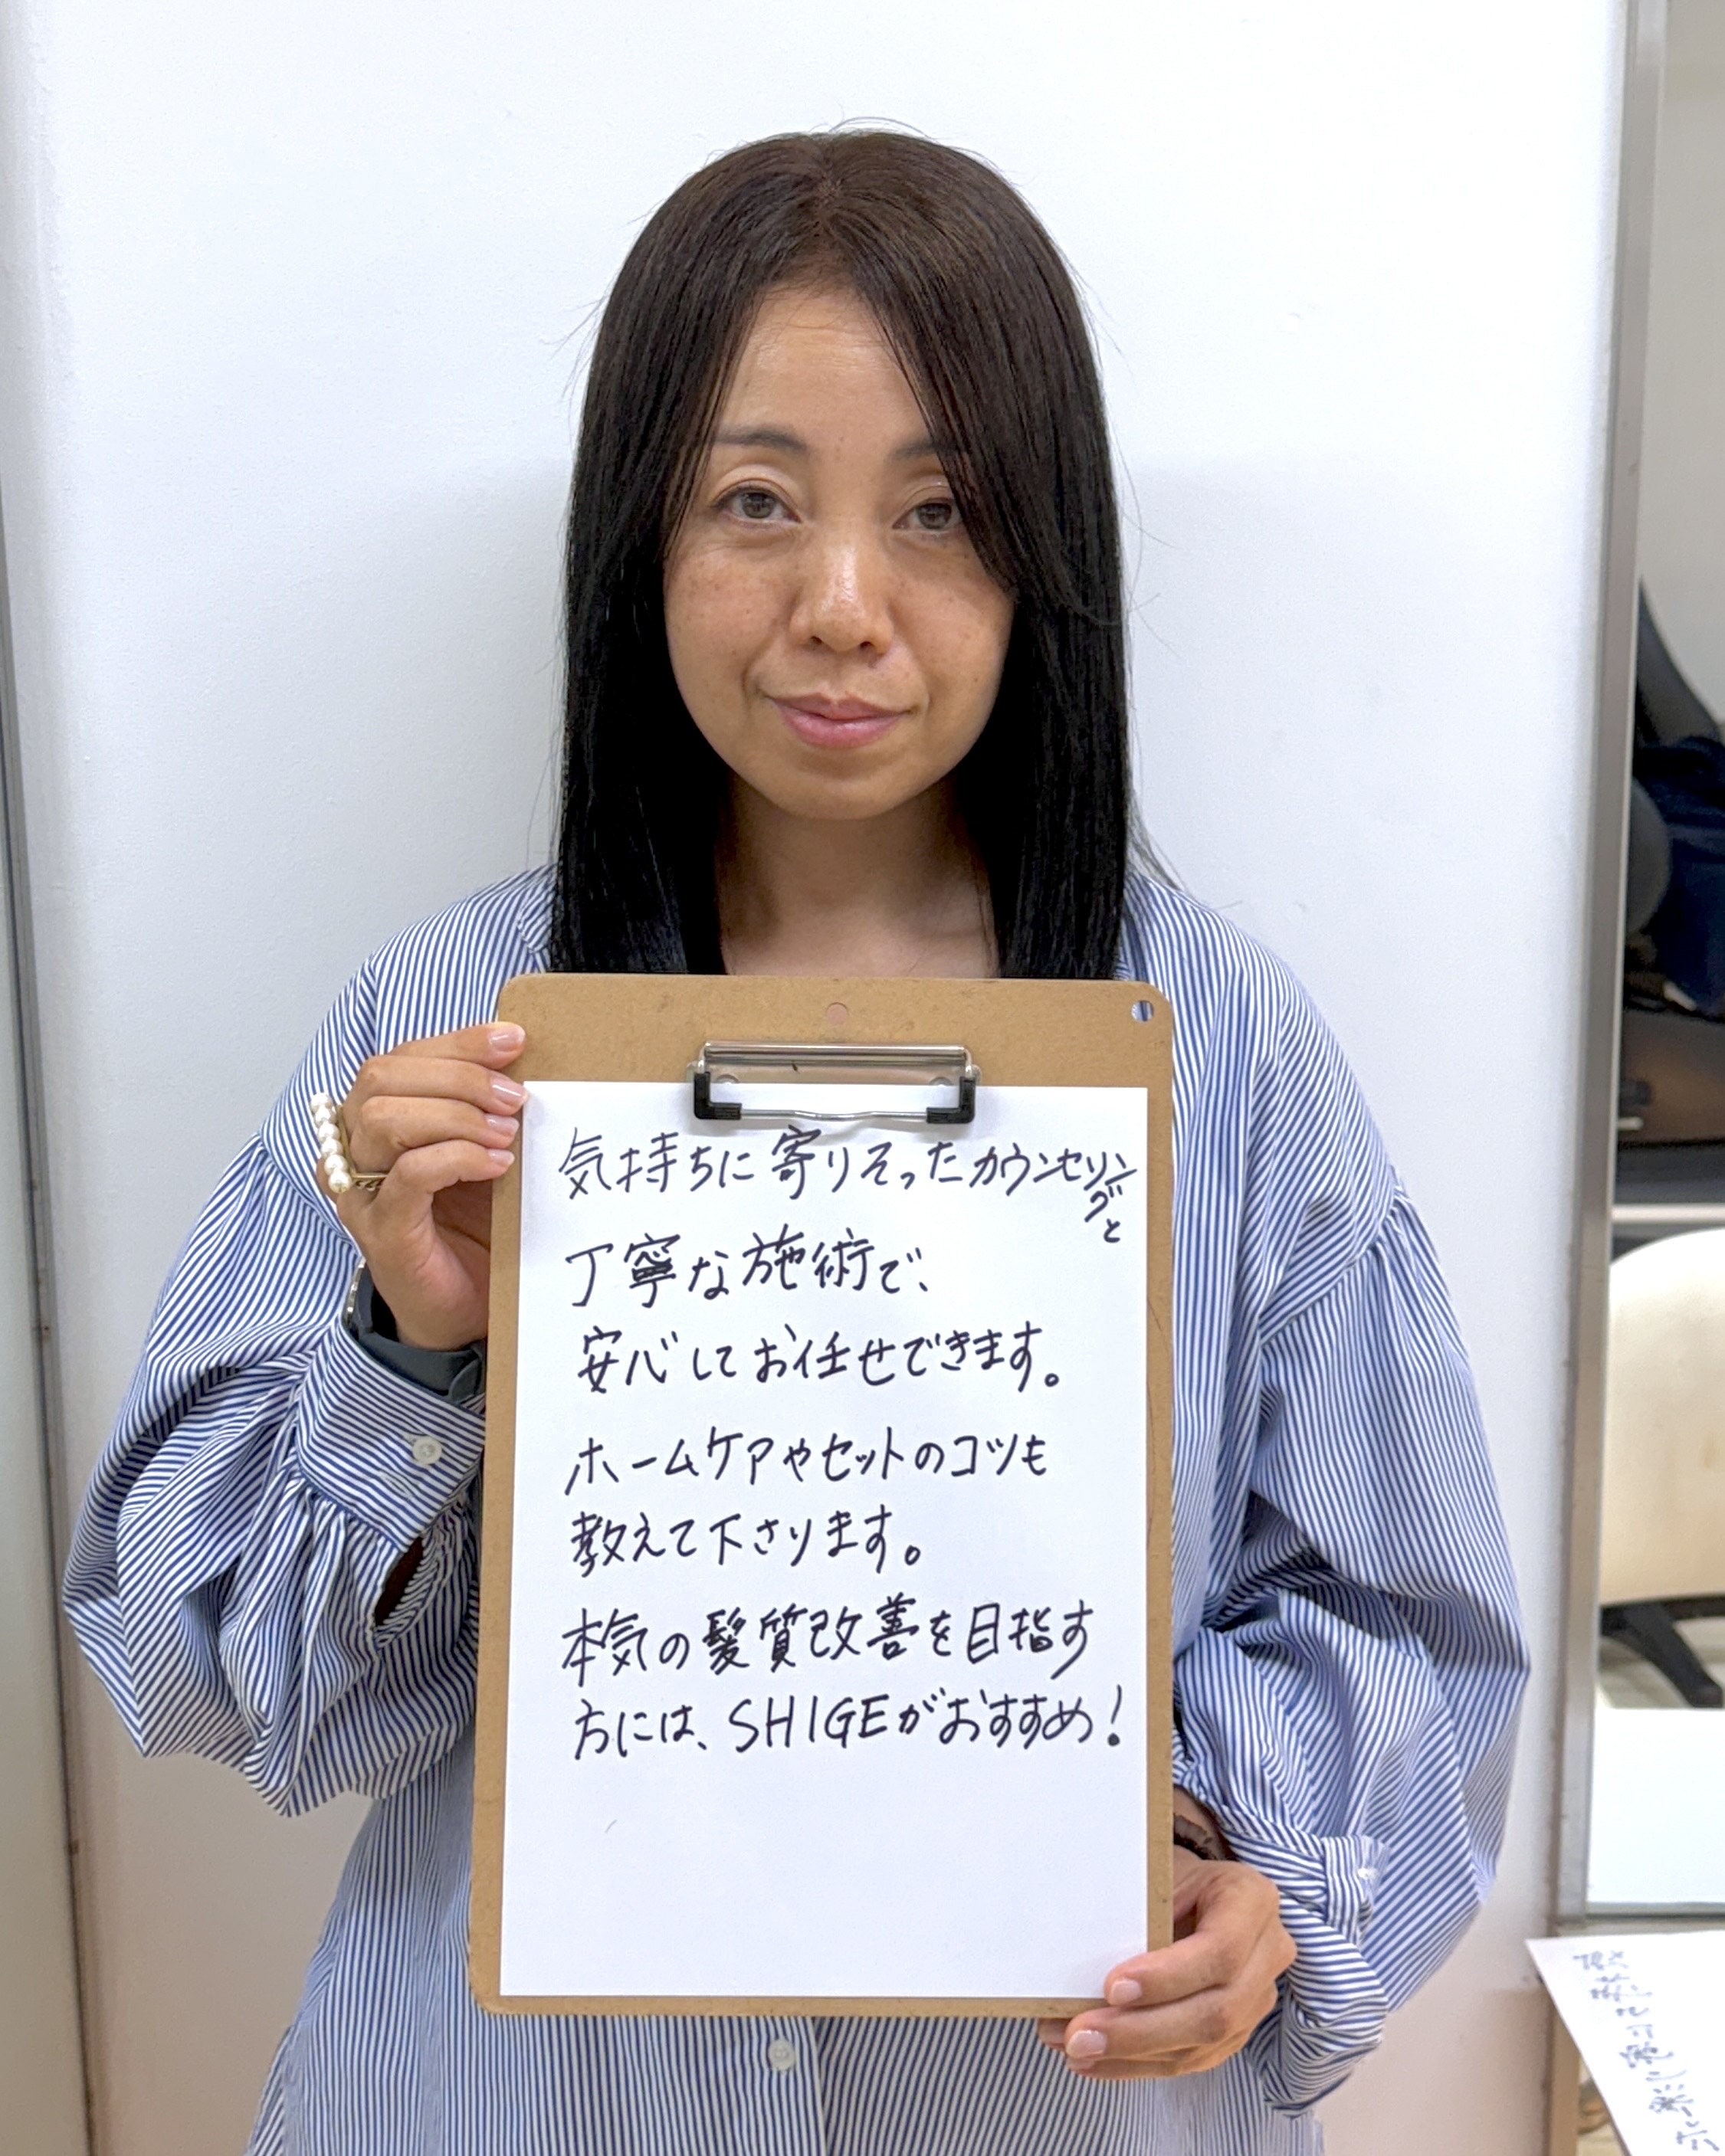 気持ちに寄りそったカウンセリングと
丁寧な施術で、
安心してお任せできます。
ホームケアやセットのコツも
教えて下さります。
本気の髪質改善を目指す
方には、SHIGEがおすすめ!